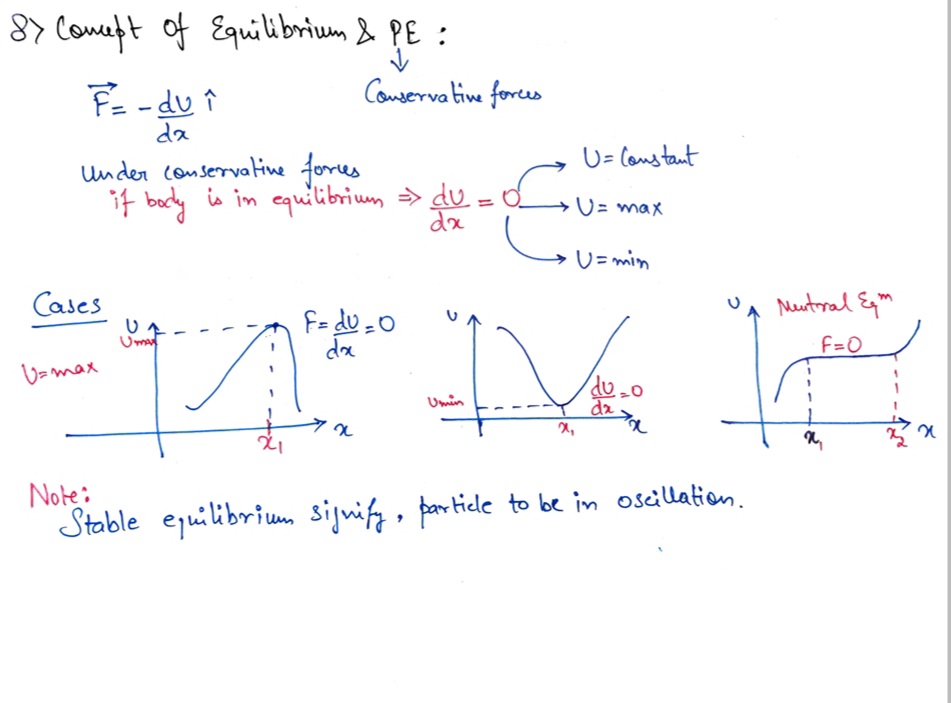 8> Concept Of Equilibrium & PE :
↓
Conservative forces
F⃗ = - dU/dx î
Under conservative forces
if body is in equilibrium ⇒ dU/dx = 0
U = Constant
U = max
U = min
Cases
U = max
U
Umax
F = dU/dx = 0
x₁
x
U
Umin
dU/dx = 0
x₁
x
U
Neutral Eqᵐ
F = 0
x₁
x₂
x
Note:
Stable equilibrium signify, particle to be in oscillation.